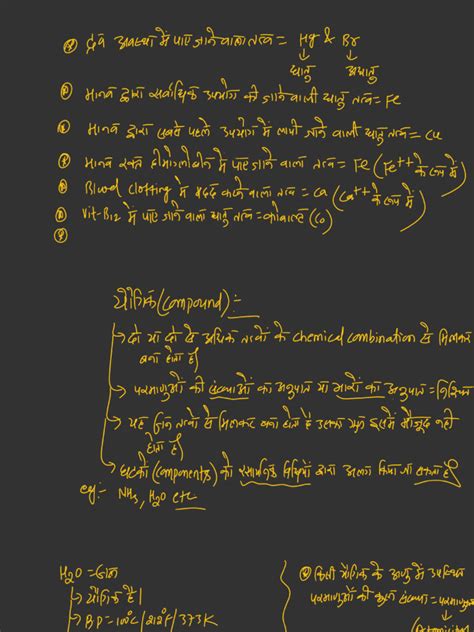 द्रव अवस्था में पाए जाने वाला तत्व = Hg & Br
↓ ↓
धातु अधातु
मानव द्वारा सर्वाधिक उपयोग की जाने वाली धातु तत्व = Fe
मानव द्वारा सबसे पहले उपयोग में लायी जाने वाली धातु तत्व = Cu
मानव रक्त हीमोग्लोबीन में पाए जाने वाला तत्व = Fe (Fe++ के रूप में)
Blood Clotting में मदद करने वाला तत्व = Ca (Ca++ के रूप में)
Vit-B12 में पाए जाने वाला धातु तत्व = कोबाल्ट (Co)
यौगिक (Compound) :-
→ दो या दो से अधिक तत्वों के chemical combination से मिलकर
बना होता है।
→ परमाणुओं की संख्याओं का अनुपात या भारों का अनुपात = निश्चित
→ यह जिन तत्वों से मिलकर बना होता है उसका गुण इसमें मौजूद नहीं
होता है।
→ घटकों (Components) को रासायनिक विधियों द्वारा अलग किया जा सकता है।
eg:- NH3, H2O etc
H2O = जल
→ यौगिक है।
→ BP = 100°C / 212°F / 373K
किसी यौगिक के अणु में उपस्थित
परमाणुओं की कुल संख्या = परमाणुकता
↓
(Atomicity)